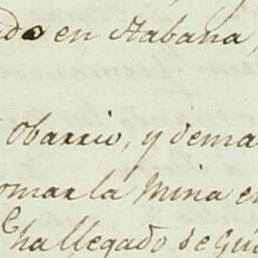 do en Habana,
Obarrio, y dema
omar la Mina e
ha llegado de Gu